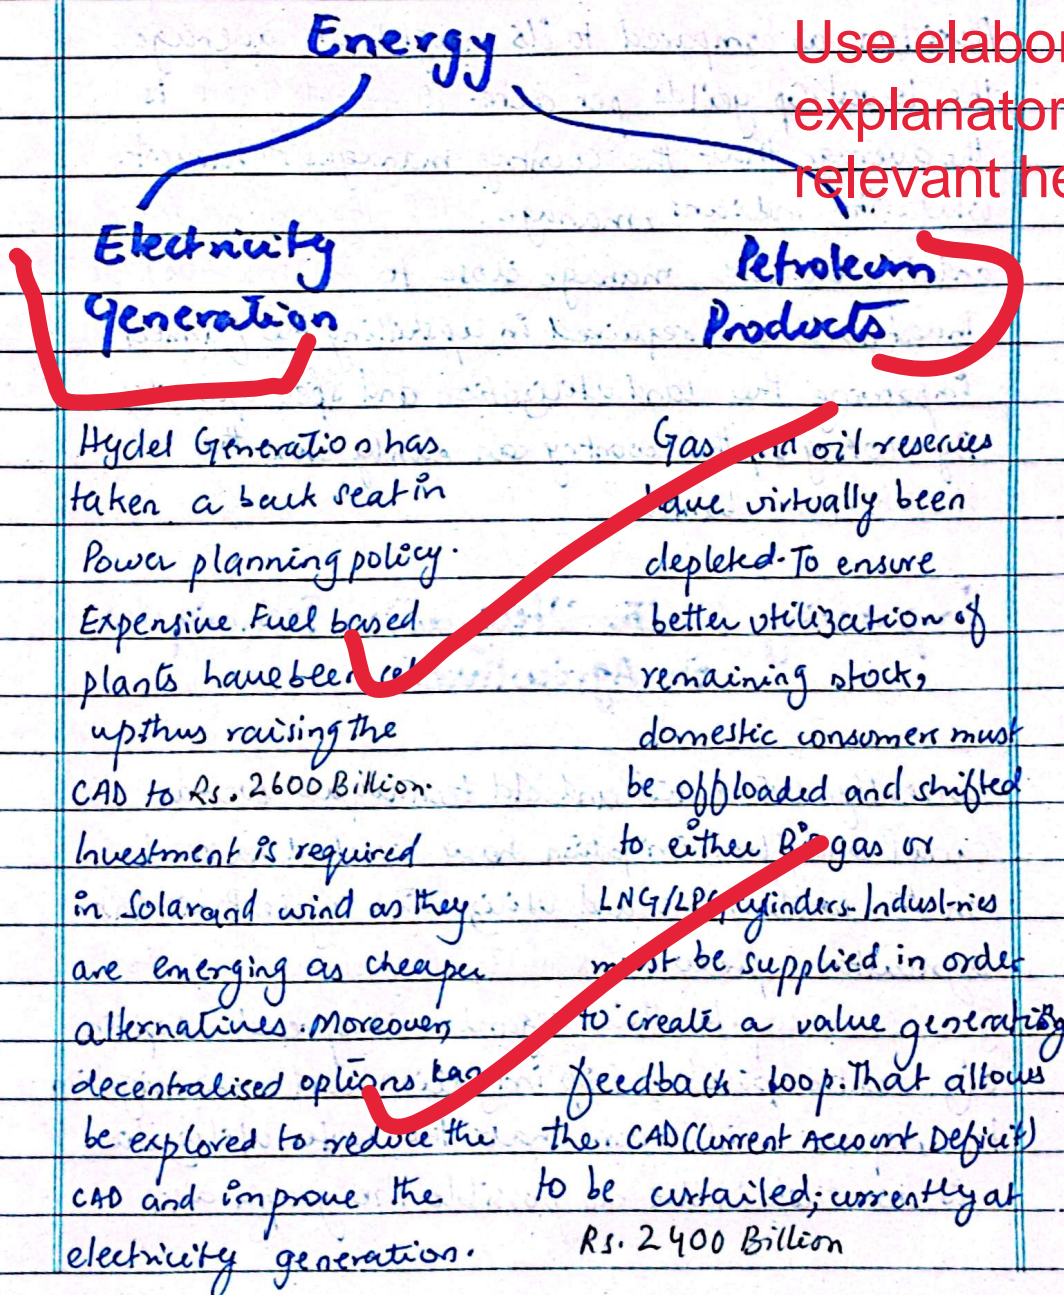 Energy
Use elabor
explanator
relevant he
Electricity
Generation
Hydel Generation has
taken a back seat in
Power planning policy.
Expensive Fuel based
plants have been set
up thus raising the
CAD to Rs. 2600 Billion.
Investment is required
in Solar and wind as they
are emerging as cheaper
alternatives. Moreover,
decentralised options can
be explored to reduce the
CAD and improve the
electricity generation.
Petroleum
Products
Gas and oil reserves
have virtually been
depleted. To ensure
better utilization of
remaining stock,
domestic consumers must
be offloaded and shifted
to either Biogas or
LNG/LPG cylinders. Industries
must be supplied in order
to create a value generating
feedback loop. That allows
the CAD (Current Account Deficit)
to be curtailed; currently at
Rs. 2400 Billion